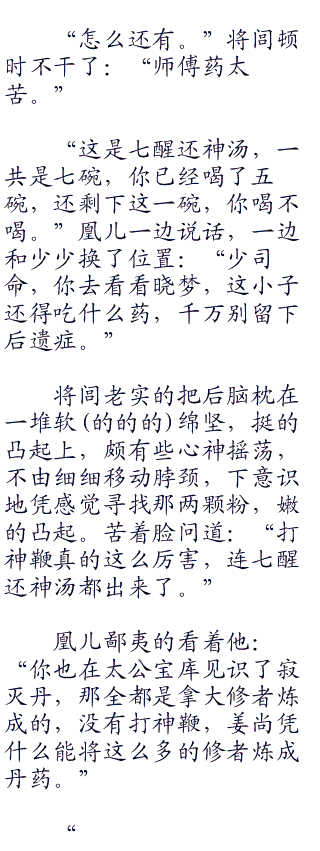 “怎么还有。”将闾顿
时不干了：“师傅药太
苦。”
“这是七醒还神汤，一
共是七碗，你已经喝了五
碗，还剩下这一碗，你喝不
喝。”凰儿一边说话，一边
和少少换了位置：“少司
命，你去看看晓梦，这小子
还得吃什么药，千万别留下
后遗症。”
将闾老实的把后脑枕在
一堆软(的的的)绵坚，挺的
凸起上，颇有些心神摇荡，
不由细细移动脖颈，下意识
地凭感觉寻找那两颗粉，嫩
的凸起。苦着脸问道：“打
神鞭真的这么厉害，连七醒
还神汤都出来了。”
凰儿鄙夷的看着他：
“你也在太公宝库见识了寂
灭丹，那全都是拿大修者炼
成的，没有打神鞭，姜尚凭
什么能将这么多的修者炼成
丹药。”
“